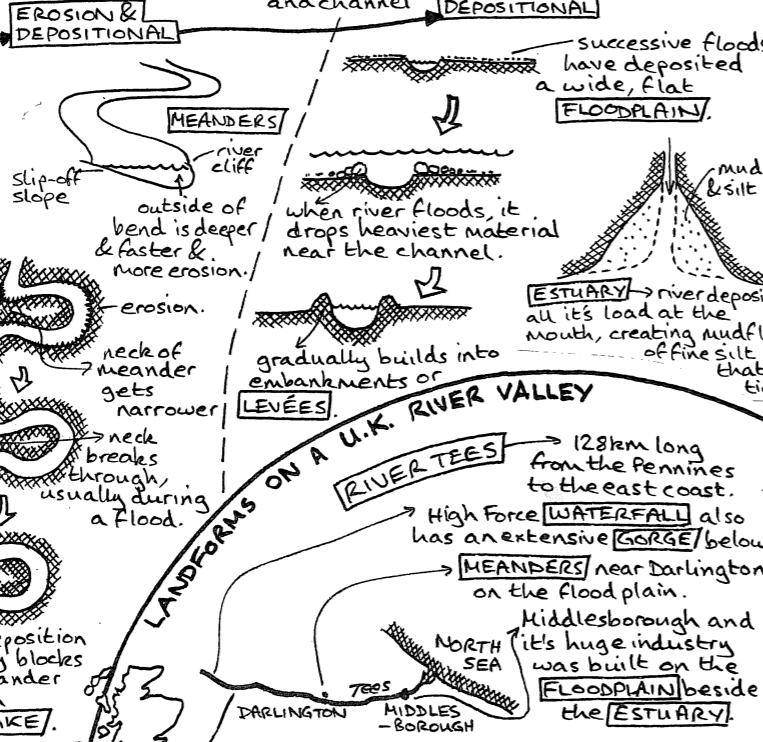 EROSION &
DEPOSITIONAL
and channel
DEPOSITIONAL
MEANDERS
river
cliff
slip-off
slope
outside of
bend is deeper
& faster &
more erosion.
erosion.
neck of
meander
gets
narrower
neck
breaks
through,
usually during
a flood.
blocks
successive floods
have deposited
a wide, flat
FLOODPLAIN.
when river floods, it
drops heaviest material
near the channel.
gradually builds into
embankments or
LEVÉES.
mud
& silt
ESTUARY → river
all it's load at the
mouth, creating
of fine silt
that
LANDFORMS ON A U.K. RIVER VALLEY
RIVER TEES → 128km long
from the Pennines
to the east coast.
High Force WATERFALL also
has an extensive GORGE below
MEANDERS near Darlington
on the flood plain.
Middlesborough and
it's huge industry
was built on the
FLOODPLAIN beside
the ESTUARY.
NORTH
SEA
TEES
DARLINGTON
MIDDLES
-BOROUGH